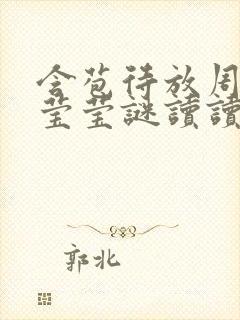 含苞待放周
莹莹謎讀讀
郭北